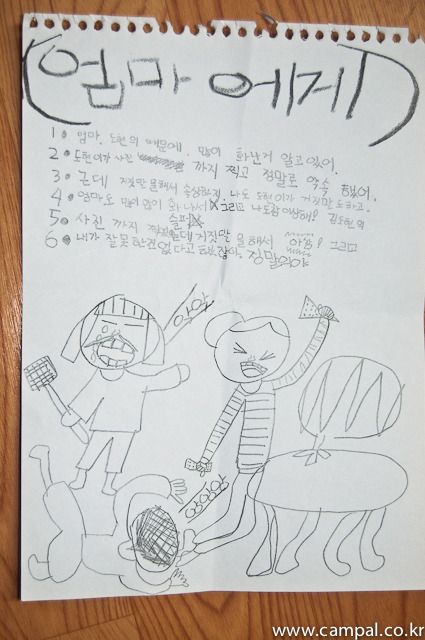 (엄마 에게)
1. 엄마, 도현의 때문에, 많이 화난거 알고 있어.
2. 도현이가 사진 까지 찍고 정말로 약속 했어.
3. 근데 거짓말 해서 속상하지, 나도 도현이가 거짓말 도하고.
4. 엄마도 많이 많이 화 나서 그리고 나도 이상해! 김도현 의
슬퍼
5. 사진 까지 찍고 근데 거짓말 을 해서 그리고
6. 내가 잘못 한건 없다고 정말이야
와와
www.campal.co.kr